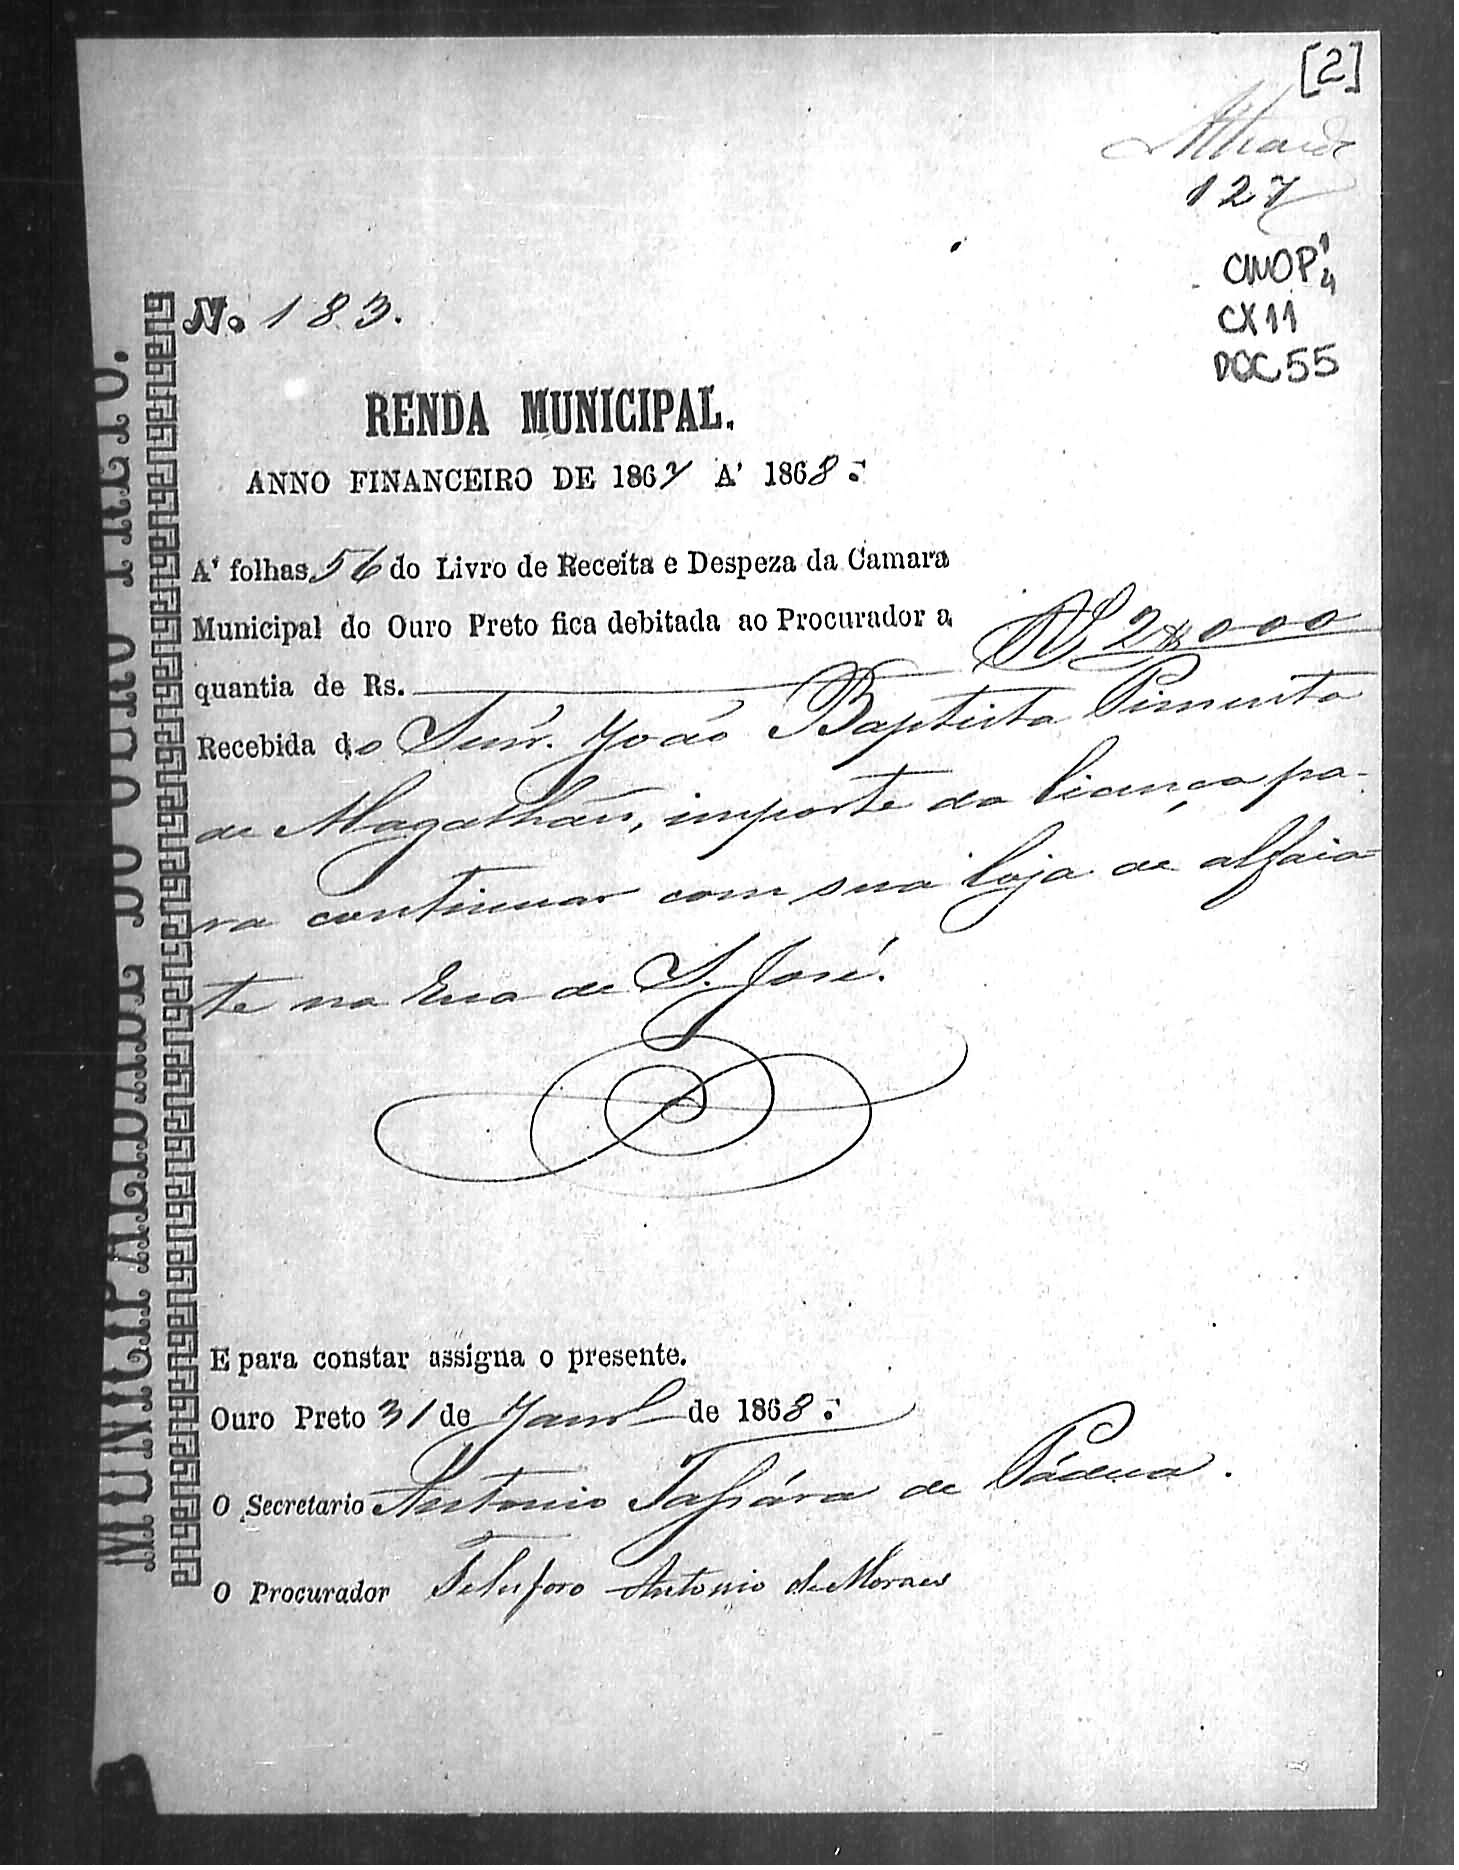 [2]
127
CMOP 1/4
CX 11
DOC 55
MUNICIPALIDADE DO OURO PRETO.
N. 183.
RENDA MUNICIPAL.
ANNO FINANCEIRO DE 1867 A' 1868.
A' folhas 56 do Livro de Receita e Despeza da Camara
Municipal do Ouro Preto fica debitada ao Procurador a
quantia de Rs. R$ 2$000
Recebida do Senr. João Baptista Pimenta
de Magalhães, importe da licença pa-
ra continuar com sua loja de alfaia-
te na Rua de S. José.
E para constar assigna o presente.
Ouro Preto 31 de Janrº de 1868.
O Secretario Antonio de Pádua.
O Procurador Telesforo Antonio de Moraes